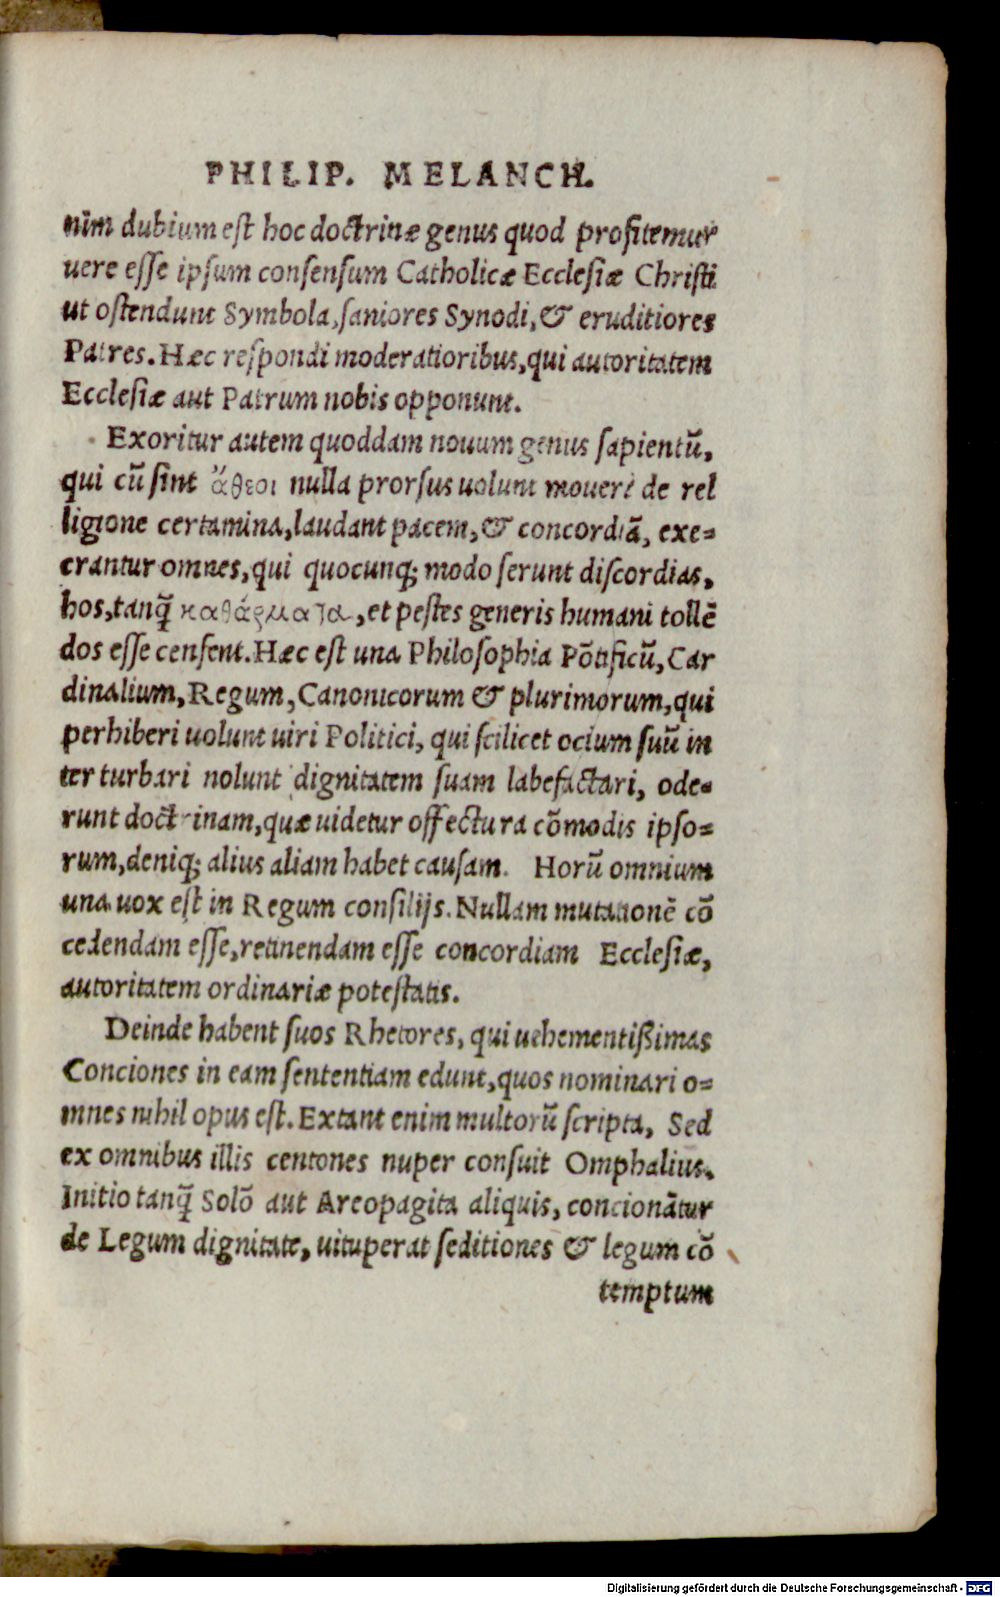 PHILIP. MELANCH.
nĩm dubium est hoc doctrinæ genus quod profitemur
uere esse ipsum consensum Catholicæ Ecclesiæ Christi
ut ostendunt Symbola, saniores Synodi, & eruditiores
Patres. Hæc respondi moderatioribus, qui autoritatem
Ecclesiæ aut Patrum nobis opponunt.
Exoritur autem quoddam nouum genus sapientũ,
qui cũ sint ἄθεοι nulla prorsus uolunt moueri de rel
ligione certamina, laudant pacem, & concordiã, exe=
crantur omnes, qui quocunq; modo serunt discordias,
hos, tanq̃ καθάρματα, et pestes generis humani tollẽ
dos esse censent. Hæc est una Philosophia Põtificũ, Car
dinalium, Regum, Canonicorum & plurimorum, qui
perhiberi uolunt uiri Politici, qui scilicet ocium suũ in
ter turbari nolunt dignitatem suam labefactari, ode=
runt doctrinam, quæ uidetur offectura cõmodis ipso=
rum, deniq; alius aliam habet causam. Horũ omnium
una uox est in Regum consilijs. Nullam mutationẽ cõ
cedendam esse, retinendam esse concordiam Ecclesiæ,
autoritatem ordinariæ potestatis.
Deinde habent suos Rhetores, qui uehementißimas
Conciones in eam sententiam edunt, quos nominari o=
mnes nihil opus est. Extant enim multorũ scripta, Sed
ex omnibus illis centones nuper consuit Omphalius.
Initio tanq̃ Solõ aut Areopagita aliquis, concionãtur
de Legum dignitate, uituperat seditiones & legum cõ
temptum
Digitalisierung gefördert durch die Deutsche Forschungsgemeinschaft - DFG